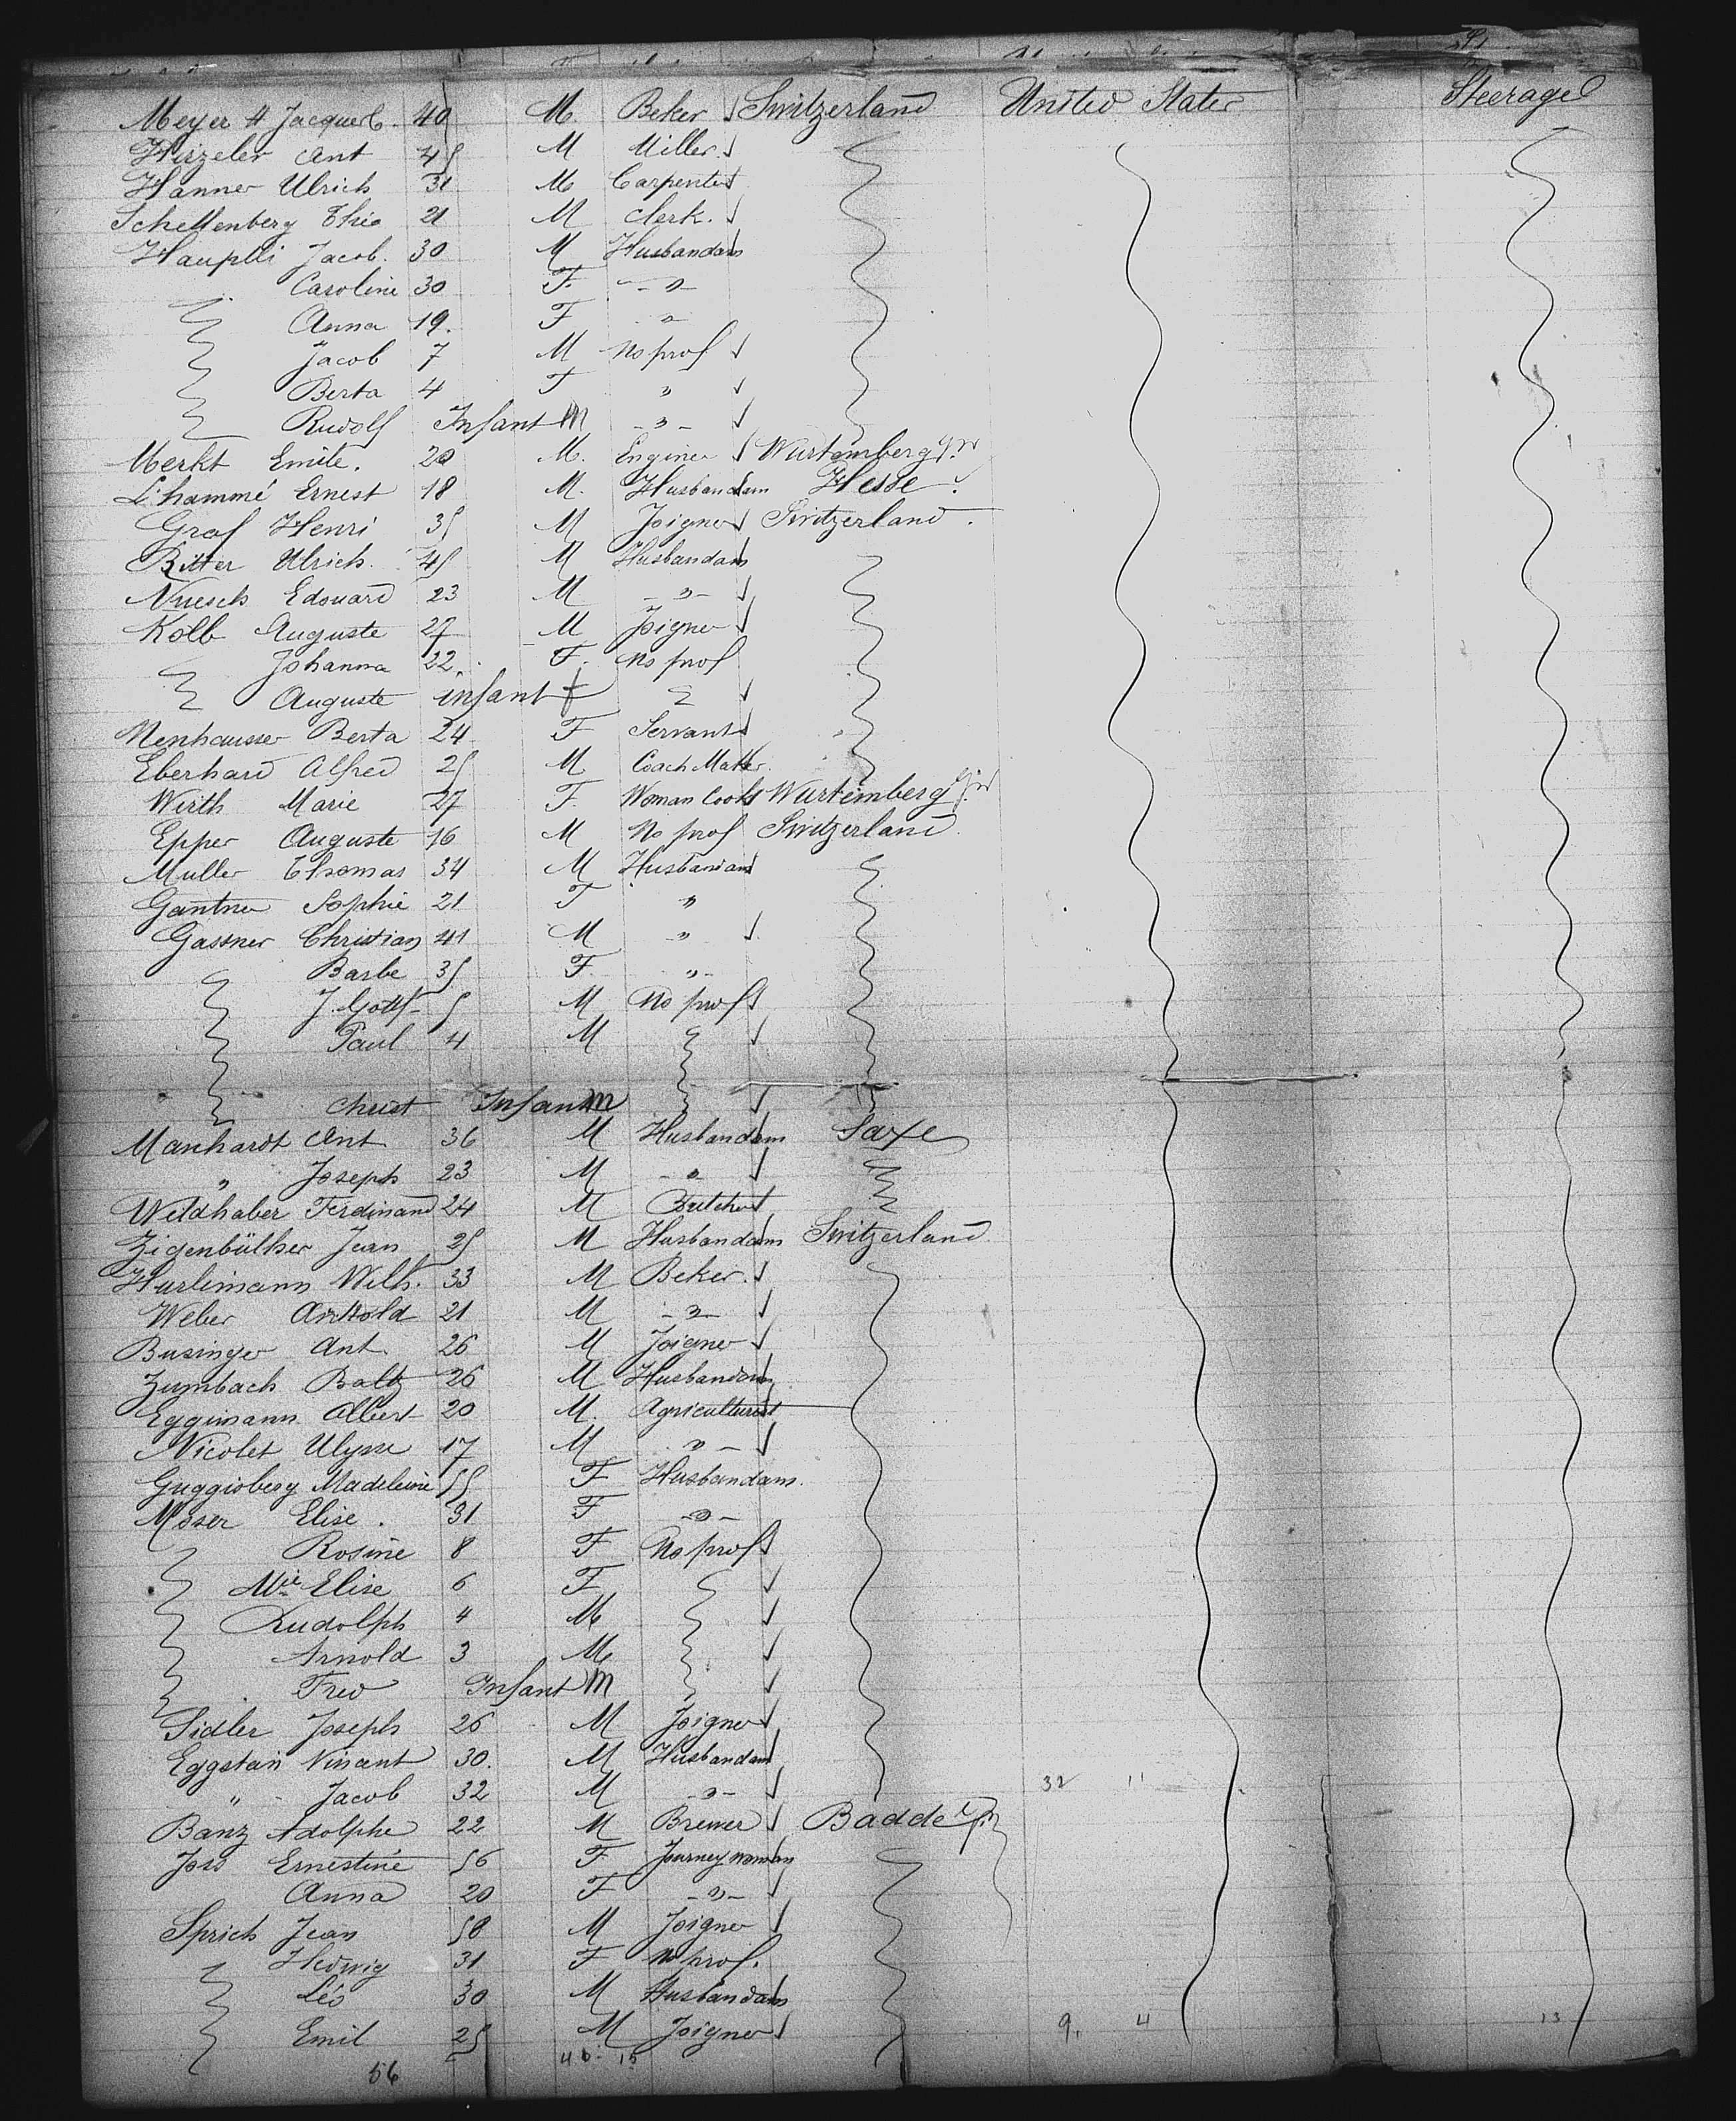 Meyer H Jacques 40 M. Beker Switzerland United States Steerage
Hirzeler Ant 45 M Miller
Hanner Ulrich 31 M Carpenter
Schellenberg Theo 21 M Clerk.
Hauptli Jacob. 30 M Husbandam
Caroline 30 F. - " -
Anna 19. F "
Jacob 7 M No prof
Berta 4 F "
Rudolf Infant M - " -
Merkt Emile. 20 M. Enginer Wurtemberg
L'hammé Ernest 18 M. Husbandam Hesse
Graf Henri 35 M Joigner Switzerland.
Ritter Ulrich. 45 M Husbandam
Nuesch Edouard 23 M - " -
Kolb Auguste 27 M Joigner
Johanna 22. F. No prof
Auguste infant f
Nenhausser Berta 24 F Servant
Eberhard Alfred 25 M Coach Maker.
Wirth Marie 27 F. Woman Cook Wurtemberg
Epper Auguste 16 M No prof Switzerland.
Muller Thomas 34 M Husbandam
Gantner Sophie 21 F "
Gassner Christian 41 M "
Barbe 35 F. "
J. Gottf 5 M No prof
Paul 4 M
Christ Infant M
Manhardt Ant 36 M Husbandam Saxe
" Joseph 23 M - " -
Weldhaber Ferdinand 24 M Butcher
Zigenbülher Jean 25 M Husbandam Switzerland
Hurlimann Wilh. 33 M Beker.
Weber Arnold 21 M - " -
Businger Ant. 26 M Joigner
Zumbach Baltz 26 M Husbandam
Eggimann Albert 20 M. Agriculturist
Nicolet Ulysse 17 M " -
Guggisberg Madeleine 55 F Husbandam.
Moser Elise. 31 F - " -
Rosine 8 F No prof
Mie Elise 6 F
Rudolph 4 M
Arnold 3 M
Fred Infant M
Sidler Joseph 26 M Joigner
Eggstan Vinsant 30. M Husbandam
" Jacob 32 M - " - 32 11
Banz Adolphe 22 M Brewer Badde
Joss Ernestine 56 F Journey woman
Anna 20 F - " -
Sprich Jean 58 M Joigner
Hedwig 31 F No prof.
Léo 30 M Husbandam
Emil 25 M Joigner 9, 4 13
56 40 15